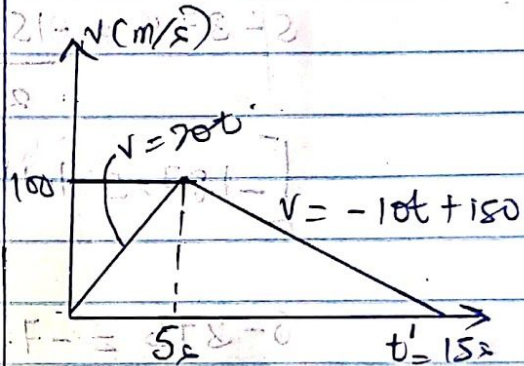 v (m/s)
v = 20t
100
v = -10t + 150
5s
t' = 15s